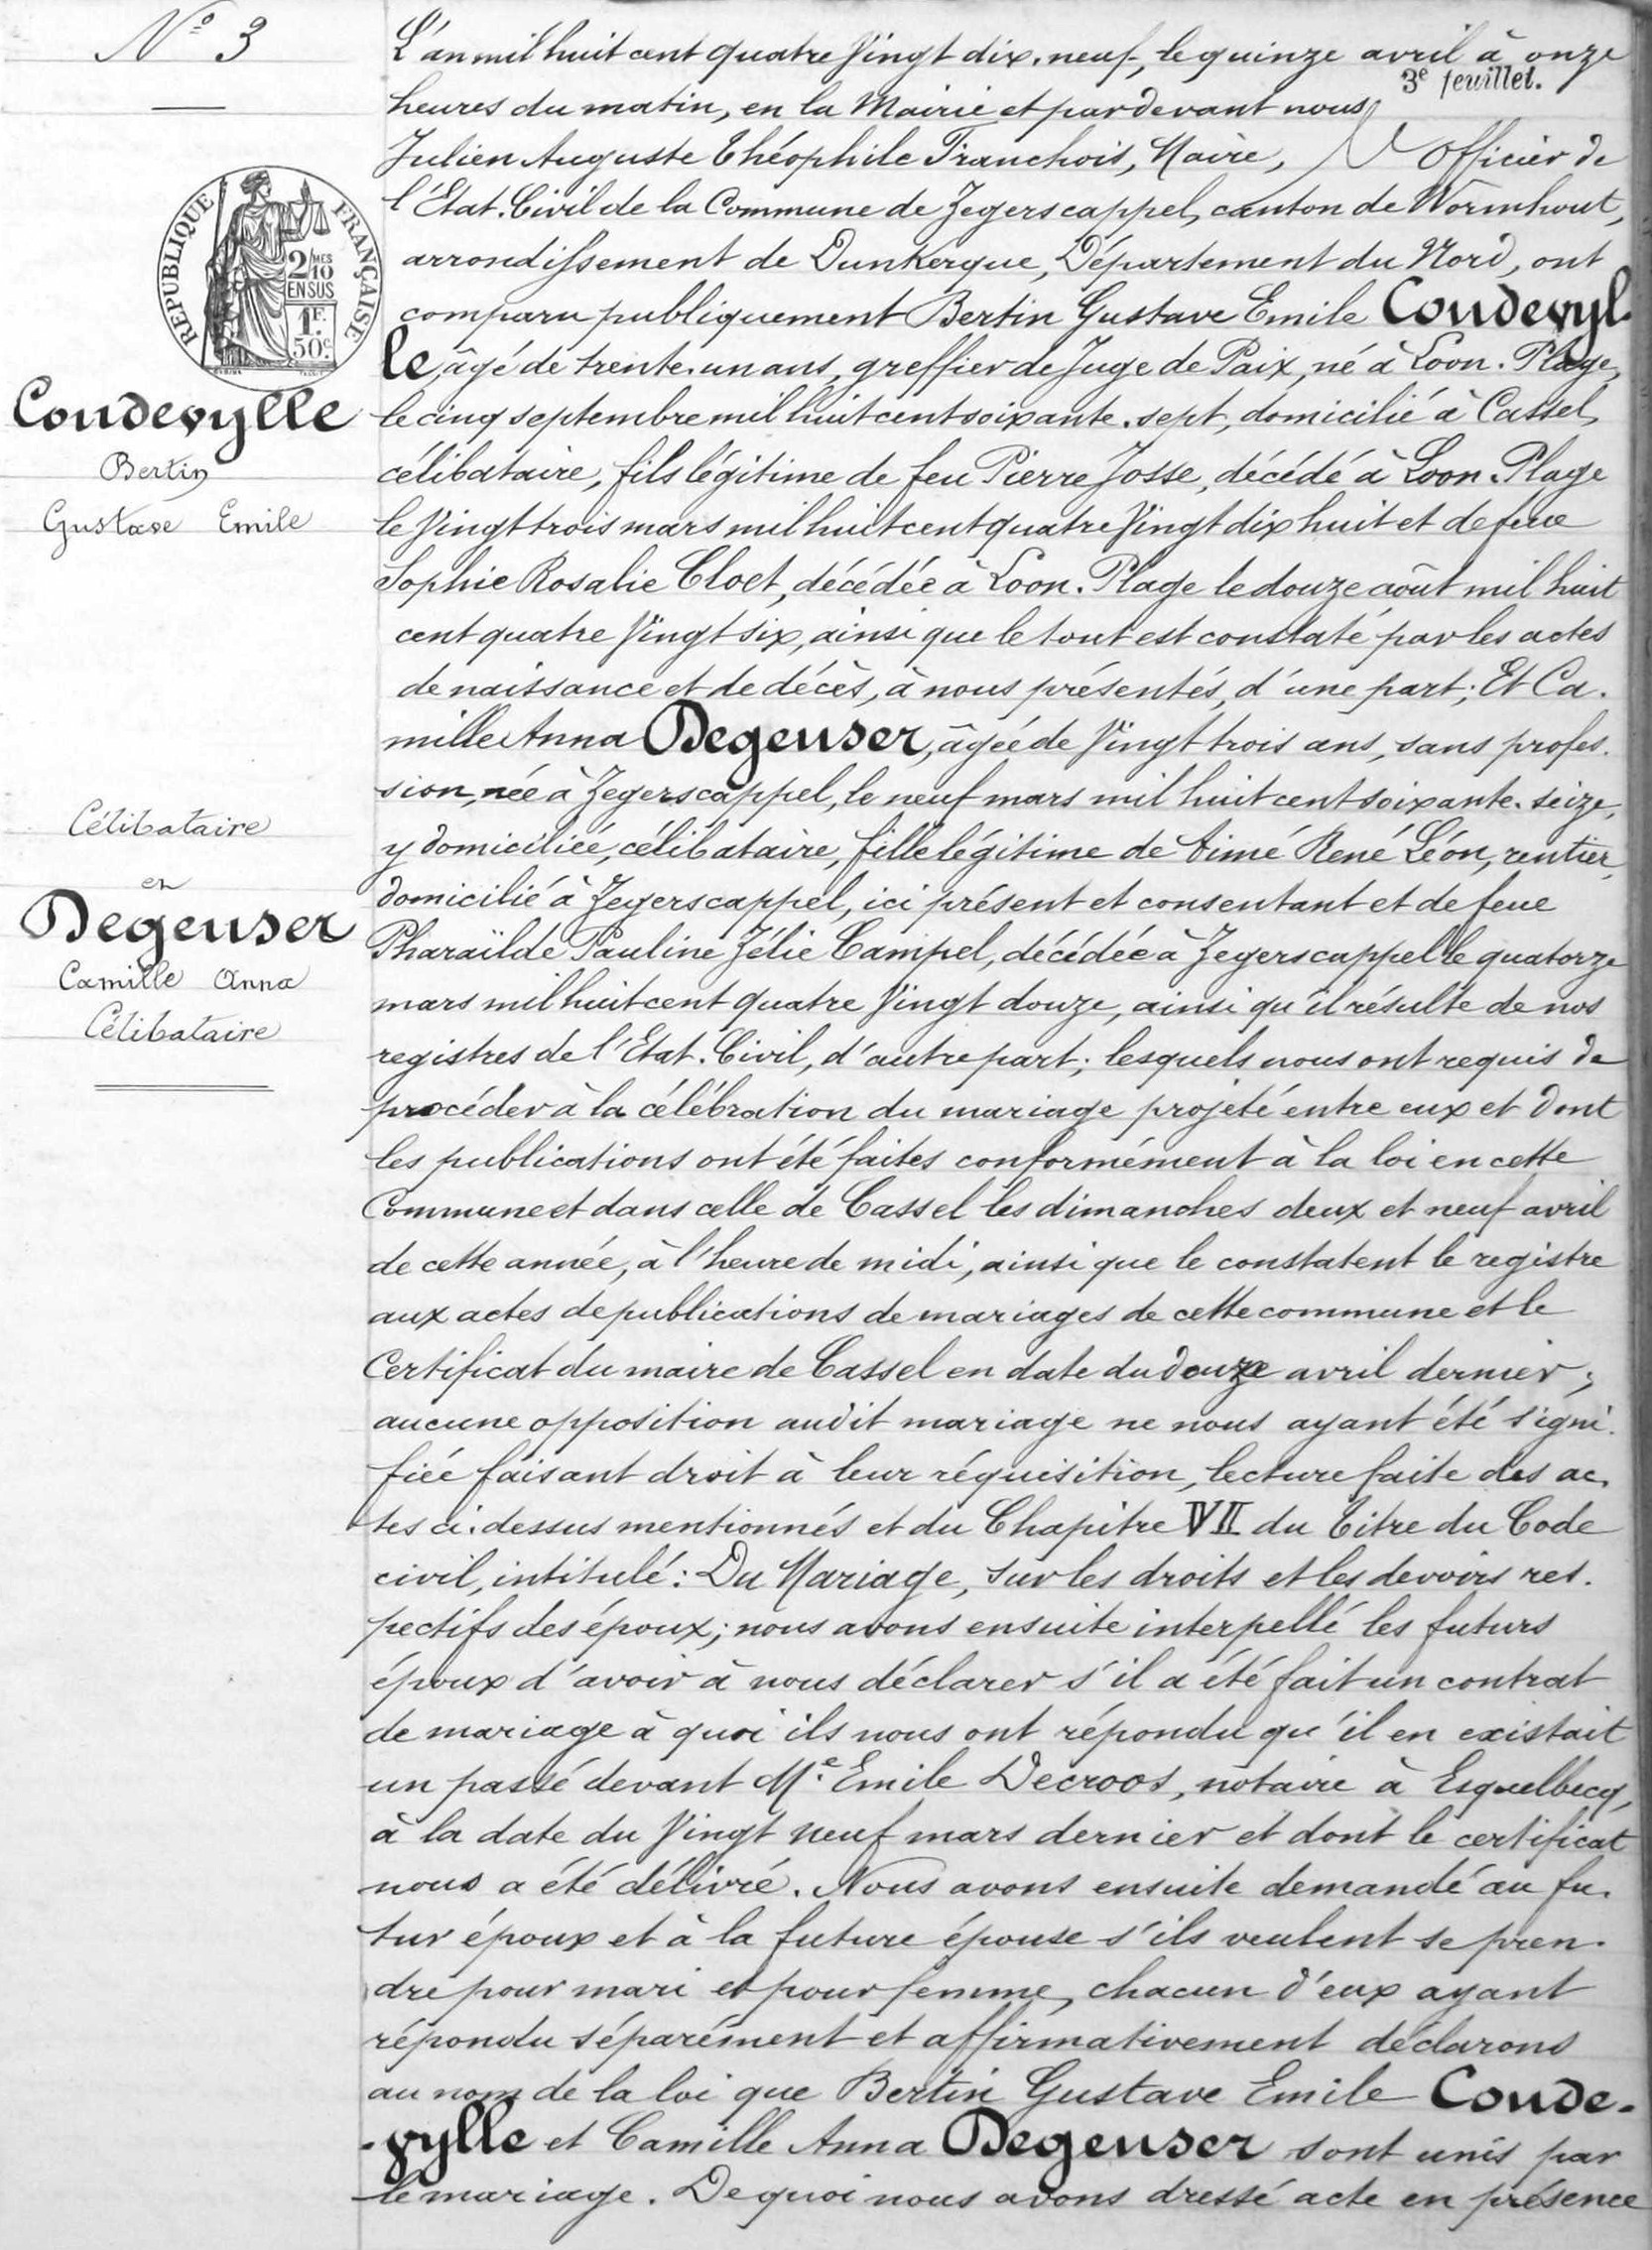 N° 3
RÉPUBLIQUE FRANÇAISE
2/10 MES
EN SUS
1F.
50c
Coudevylle
Bertin
Gustave Emile
Célibataire
et
Degeuser
Camille Anna
Célibataire
L'an mil huit cent quatre Vingt dix. neuf, le quinze avril à onze
3e feuillet.
heures du matin, en la Mairie et par devant nous
Julien Auguste Théophile Franchois, Maire, Officier de
l'Etat. Civil de la Commune de Zegerscappel, canton de Wormhout,
arrondissement de Dunkerque, Département du Nord, ont
comparu publiquement Bertin Gustave Emile Coudevyl-
le, âgé de trente. un ans, greffier de Juge de Paix, né à Loon. Plage,
le cinq septembre mil huit cent soixante. sept, domicilié à Cassel,
célibataire, fils légitime de feu Pierre Josse, décédé à Loon. Plage
le Vingt trois mars mil huit cent quatre Vingt dix huit et de feue
Sophie Rosalie Cloet, décédée à Loon. Plage le douze août mil huit
cent quatre Vingt six, ainsi que le tout est constaté par les actes
de naissance et de décès, à nous présentés, d'une part; Et Ca.
mille Anna Degeuser, âgée de Vingt trois ans, sans profes.
sion, née à Zegerscappel, le neuf mars mil huit cent soixante. seize,
y domiciliée, célibataire, fille légitime de Aimé René Léon, rentier,
domicilié à Zegerscappel, ici présent et consentant et de feue
Pharaïlde Pauline Zélie Campel, décédée à Zegerscappel le quatorze
mars mil huit cent quatre Vingt douze, ainsi qu'il résulte de nos
registres de l'Etat. Civil, d'autre part; lesquels nous ont requis de
procéder à la célébration du mariage projeté entre eux et dont
les publications ont été faites conformément à la loi en cette
Commune et dans celle de Cassel les dimanches deux et neuf avril
de cette année, à l'heure de midi, ainsi que le constatent le registre
aux actes de publications de mariages de cette commune et le
Certificat du maire de Cassel en date du douze avril dernier;
aucune opposition audit mariage ne nous ayant été signi.
fiée faisant droit à leur réquisition, lecture faite des ac.
tes ci. dessus mentionnés et du Chapitre VI du Titre du Code
civil, intitulé: Du Mariage, sur les droits et les devoirs res.
pectifs des époux; nous avons ensuite interpellé les futurs
époux d'avoir à nous déclarer s'il a été fait un contrat
de mariage à quoi ils nous ont répondu qu'il en existait
un passé devant Me. Emile Decroos, notaire à Esquelbecq,
à la date du Vingt neuf mars dernier et dont le certificat
nous a été délivré. Nous avons ensuite demandé au fu.
tur époux et à la future épouse s'ils veulent se pren.
dre pour mari et pour femme, chacun d'eux ayant
répondu séparément et affirmativement déclarons
au nom de la loi que Bertin Gustave Emile Coude-
-vylle et Camille Anna Degeuser sont unis par
le mariage. De quoi nous avons dressé acte en présence